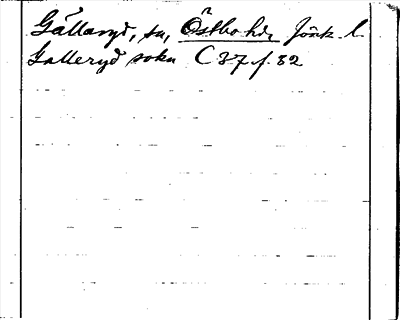 Gällaryd, sn, Östbo hd, Jönk. l.
Galleryd sokn C 37 f. 32